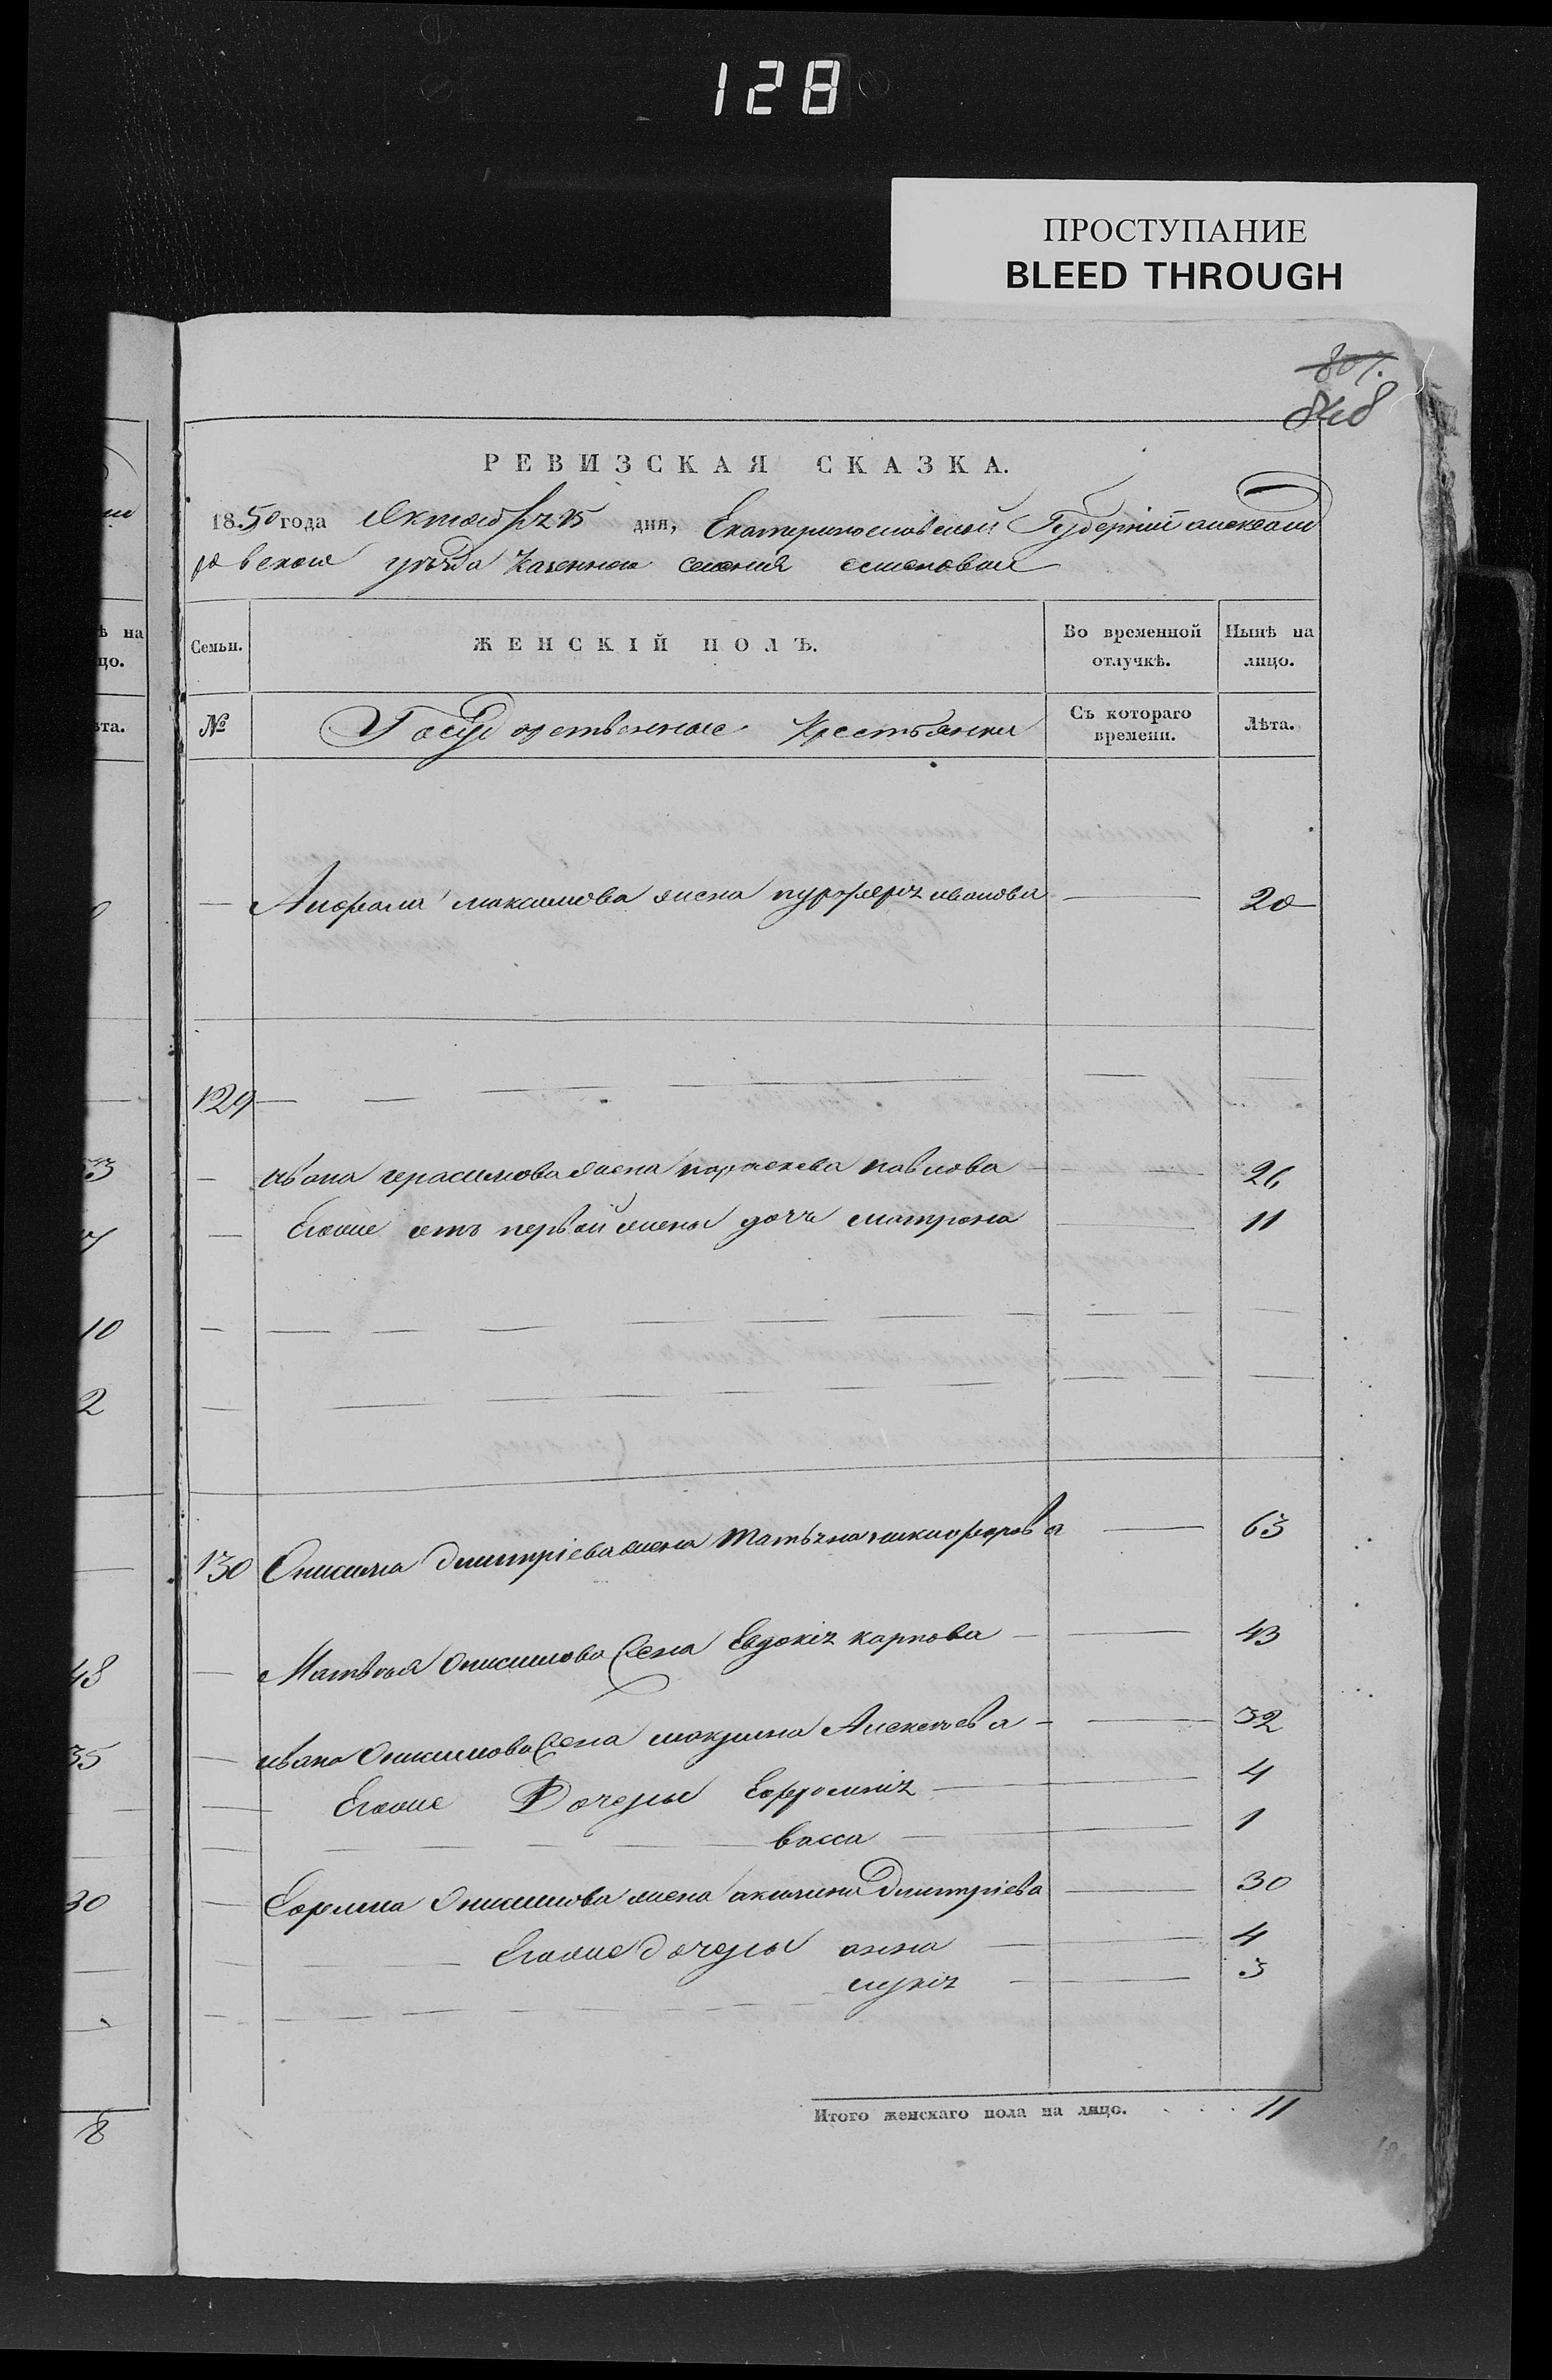 128
ПРОСТУПАНИЕ
BLEED THROUGH
807.
848
РЕВИЗСКАЯ СКАЗКА.
1850 года Октября 25 дня, Екатеринославской Губерніи александ
ровского уезда казенного селения
Семьи. ЖЕНСКІЙ ПОЛЪ. Во временной отлучкѣ. Нынѣ на лицо.
№ Государственные Крестьянки Съ котораго времени. Лѣта.
— максимова жена иванова — 20
129 — — —
— ивана герасимова жена параскева павлова — 26
— Егоже отъ первой жены дочь матрона — 11
130 Онисима Дмитріева жена никифорова — 63
— Матвея Онисимова жена Евдокія карпова — 43
— ивана Онисимова жена макрина Алексеева — 32
— Егоже Дочеры Ефросинія — 4
— васса — 1
— Ефима Онисимова жена акилина Дмитріева — 30
— Егоже дочеры анна — 4
— лукія — 3
Итого женскаго пола на лицо. . . . 11
ѣ на
цо.
ѣта.
53
7
10
2
48
35
30
8